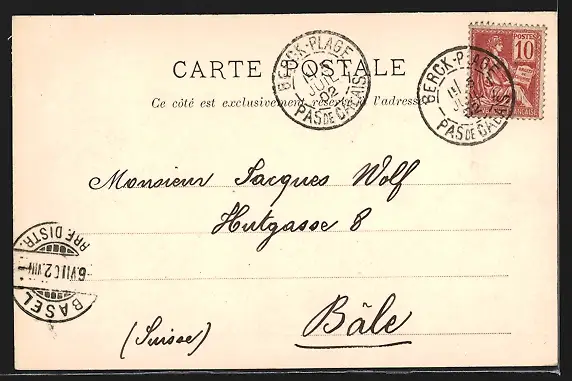 CARTE POSTALE
Ce côté est exclusivement réservé à l'adresse
BERCK-PLAGE
JUIL
02
PAS DE CALAIS
POSTES
10
BERCK-PLAGE
PAS DE CALAIS
Monsieur Jacques Wolf
Hutgasse 8
BRF. DISTR.
BASEL
(Suisse)
Bâle